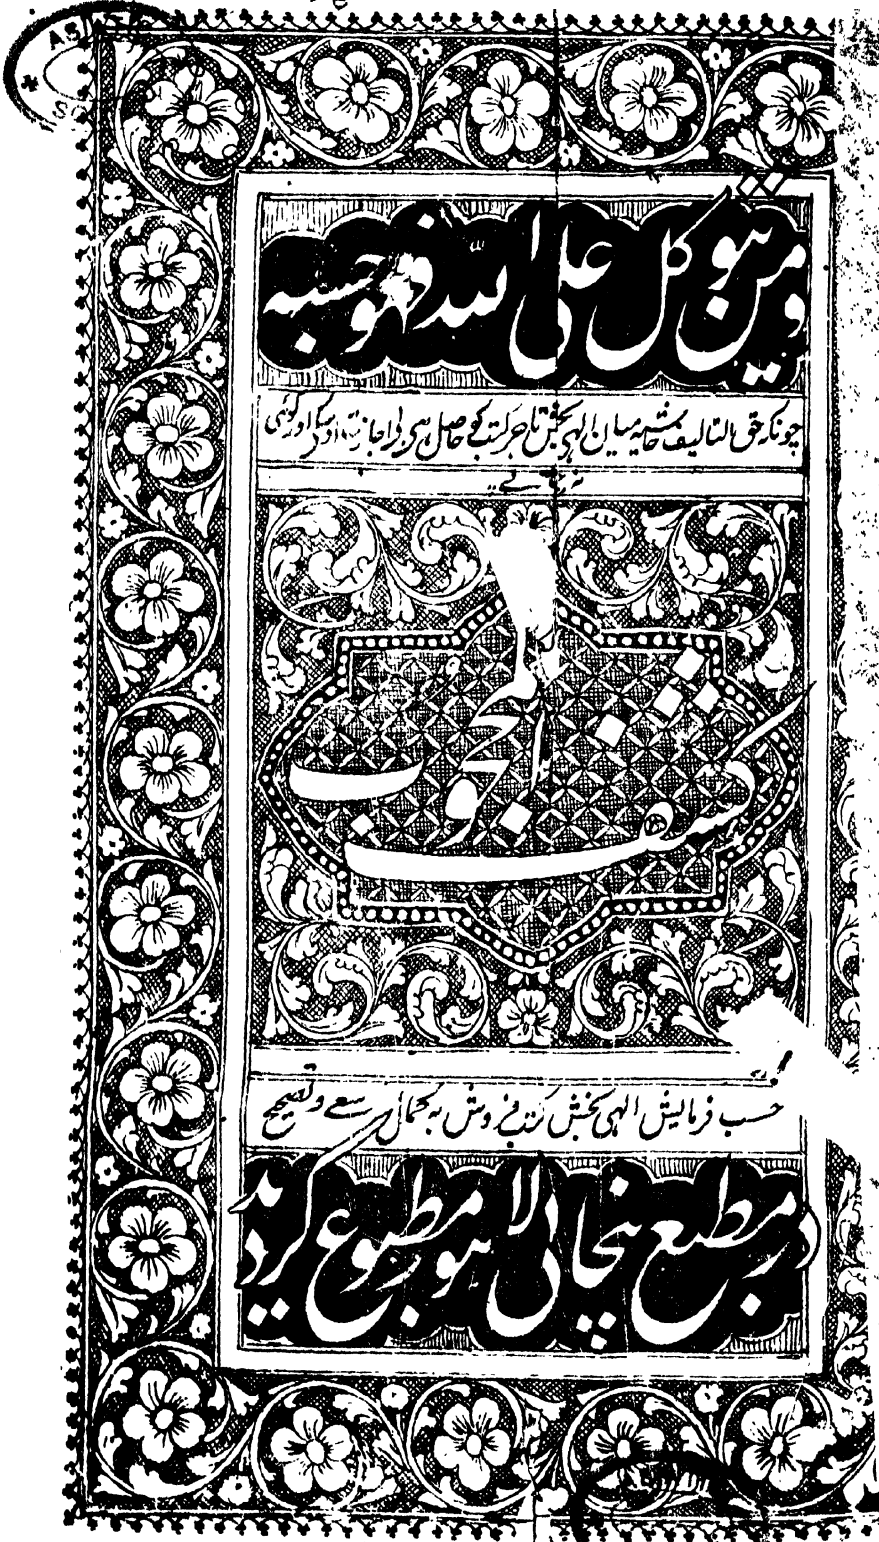 ومن یتوکل علی الله فهو حسبه
چونکہ حق التالیف حاشیہ میان الہی بخش تاجر کتب کو حاصل ہی بی اجازت اور کوئی
نہ چھاپے
کشف المحجوب
حسب فرمایش الهی بخش کتب فروش به کمال سعی و تصحیح
در مطبع پنجابی لاهور مطبوع گردید